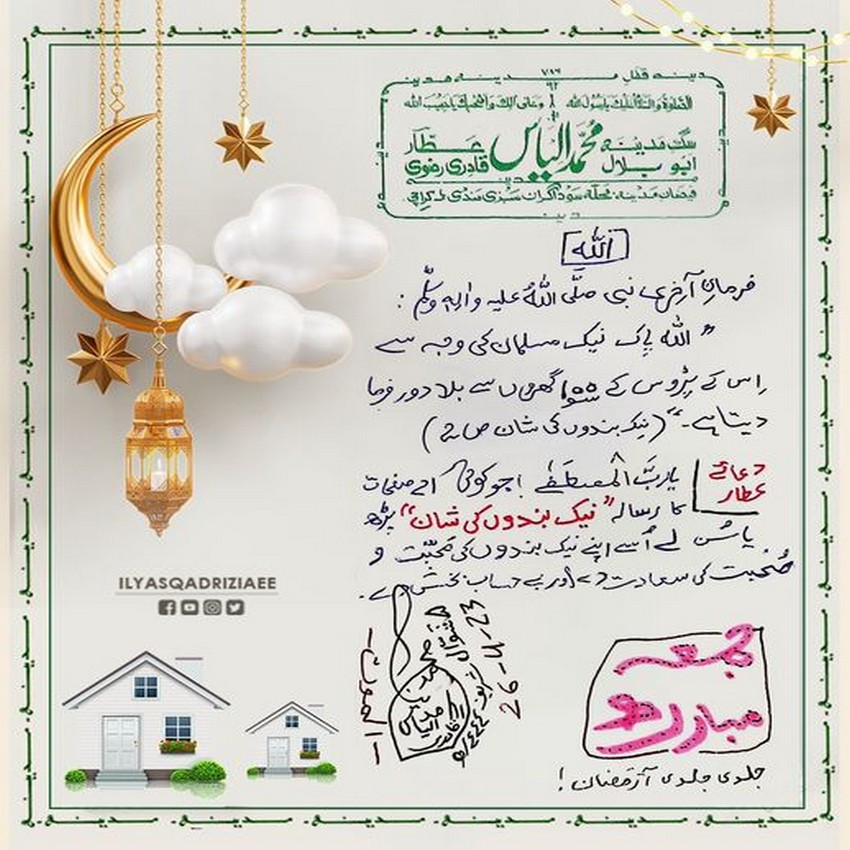 ۷۸۶
۹۲
مدینہ قفلِ مدینہ مدینہ
الصلوۃ والسلام علیک یارسول اللہ وعلیٰ اٰلک واصحٰبک یاحبیب اللہ
سگِ مدینہ محمد الیاس عطار
ابو بلال قادری رضوی
فیضانِ مدینہ محلہ سوداگران سبزی منڈی کراچی
اللہ
فرمانِ آخری نبی صلَّی اللہُ علیہ واٰلہٖ وسلَّم :
"اللہ پاک نیک مسلمان کی وجہ سے
اِس کے پڑوس کے ۱۰۰ گھروں سے بلا دور فرما
دیتا ہے۔" (نیک بندوں کی شان ص ۲)
دعائے عطار
یاربَّ المصطفٰے! جو کوئی صفحات
کا رسالہ "نیک بندوں کی شان" پڑھ
یا سُن لے اُسے اپنے نیک بندوں کی محبّت و
صُحبت کی سعادت دے اور بے حساب بخش دے۔
ILYASQADRIZIAEE
شوال ۱۴۴۴
26-4-23
الموت
جمعہ
مبارک ہو
جلدی جلدی آ رمضان!
مدینہ